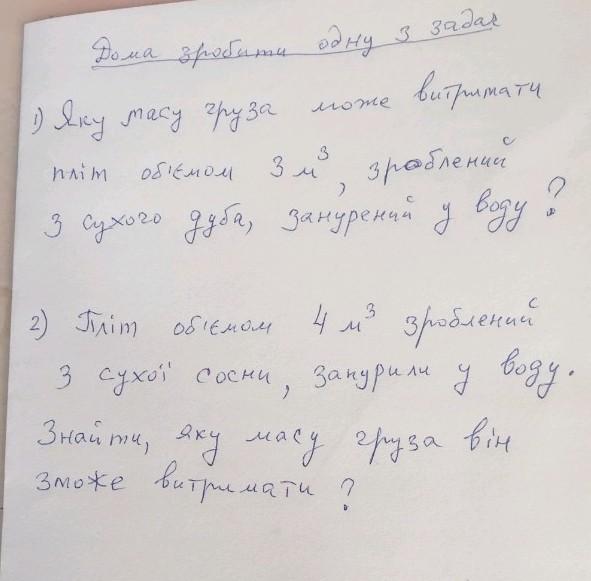 Дома зробити одну з задач
1) Яку масу груза може витримати
пліт об'ємом 3 м³, зроблений
з сухого дуба, занурений у воду?
2) Пліт об'ємом 4 м³ зроблений
з сухої сосни, занурили у воду.
Знайти, яку масу груза він
зможе витримати?